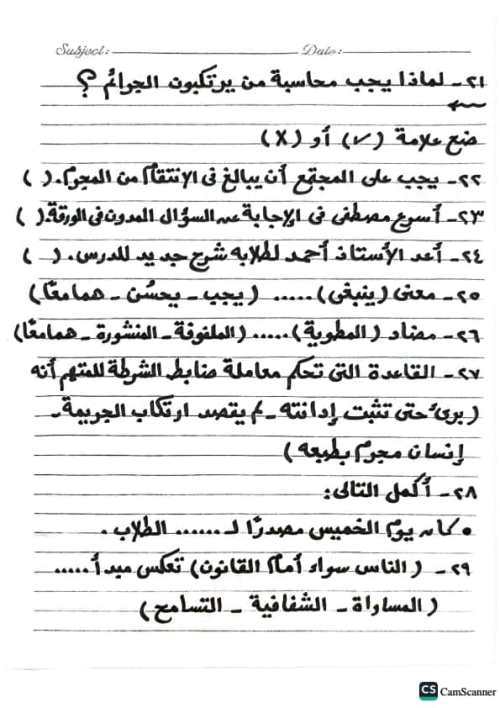 Subject: Date:
٢١- لماذا يجب محاسبة من يرتكبون الجرائم ؟
ضع علامة (✓) أو (X)
٢٢- يجب على المجتمع أن يبالغ فى الإنتقام من المجرم. ( )
٢٣- أسرع مصطفى فى الإجابة عن السؤال المدون فى الورقة. ( )
٢٤- أعد الأستاذ أحمد لطلابه شرح جديد للدرس. ( )
٢٥- معنى (ينبغى) ..... (يجب - يحسُن - همامعًا)
٢٦- مضاد (المطوية) ..... (الملفوفة - المنشورة - همامعًا)
٢٧- القاعدة التى تحكم معاملة ضابط الشرطة للمتهم أنه
(برىء حتى تثبت إدانته - لم يقصد ارتكاب الجريمة -
إنسان مجرم بطبعه)
٢٨- أكمل التالى:
• كان يوم الخميس مصدرًا لـ ....... الطلاب .
٢٩- (الناس سواء أمام القانون) تعكس مبدأ .....
(المساواة - الشفافية - التسامح)
CS CamScanner